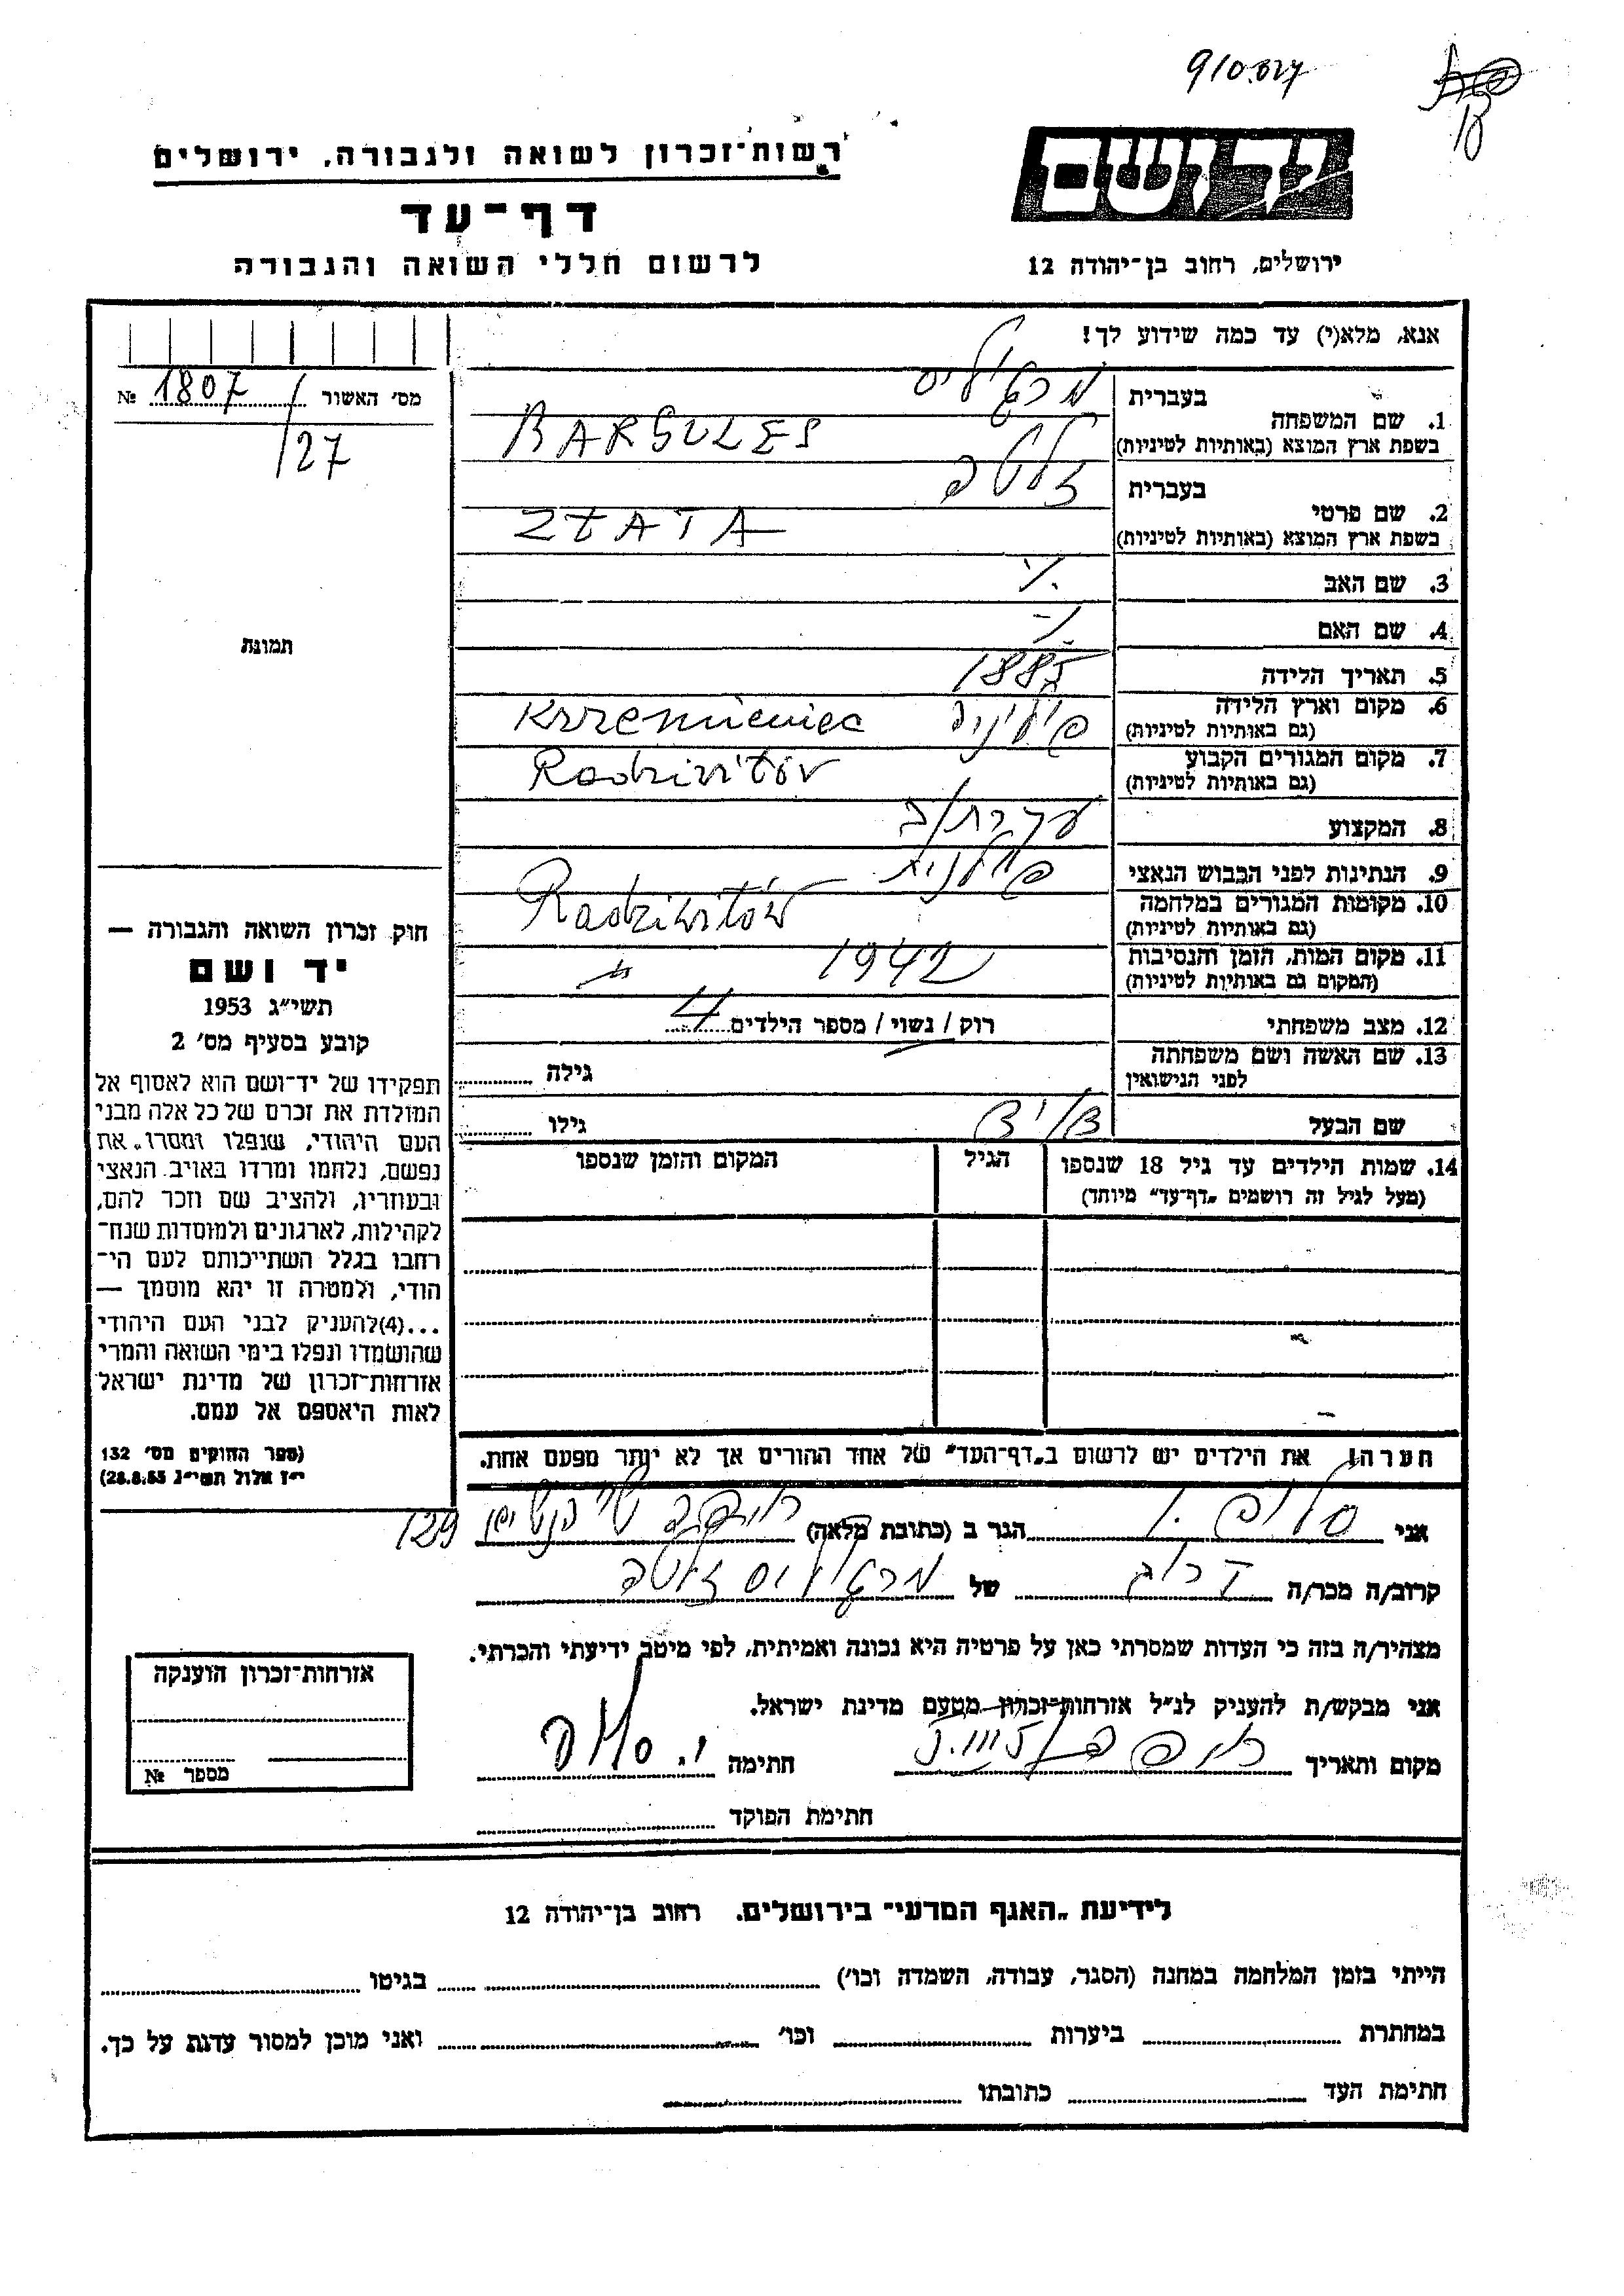 910.027
18
רשות־זכרון לשואה ולגבורה, ירושלים
יד ושם
דף־עד
לרשום חללי השואה והגבורה
ירושלים, רחוב בן־יהודה 12
אנא, מלא(י) עד כמה שידוע לך!
מס׳ האשור № 1807
/27
תמונה
1. שם המשפחה
בעברית
בשפת ארץ המוצא (באותיות לטיניות) BARGULES
2. שם פרטי
בעברית זלטה
בשפת ארץ המוצא (באותיות לטיניות) ZŁATA
3. שם האב
4. שם האם
5. תאריך הלידה 1885
6. מקום וארץ הלידה פולניה Krzemieniec
(גם באותיות לטיניות)
7. מקום המגורים הקבוע Radziwiłów
(גם באותיות לטיניות)
8. המקצוע
9. הנתינות לפני הכבוש הנאצי פולנית
10. מקומות המגורים במלחמה Radziwiłów
(גם באותיות לטיניות)
11. מקום המות, הזמן והנסיבות 1942 "
(המקום גם באותיות לטיניות)
12. מצב משפחתי רוק / נשוי / מספר הילדים 4
13. שם האשה ושם משפחתה
לפני הנישואין
גילה
שם הבעל
גילו
14. שמות הילדים עד גיל 18 שנספו
(מעל לגיל זה רושמים „דף־עד״ מיוחד)
הגיל
המקום והזמן שנספו
הערה! את הילדים יש לרשום ב„דף־העד״ של אחד ההורים אך לא יותר מפעם אחת.
חוק זכרון השואה והגבורה —
יד ושם
תשי״ג 1953
קובע בסעיף מס׳ 2
תפקידו של יד־ושם הוא לאסוף אל
המולדת את זכרם של כל אלה מבני
העם היהודי, שנפלו ומסרו את
נפשם, נלחמו ומרדו באויב הנאצי
ובעוזריו, ולהציב שם וזכר להם,
לקהילות, לארגונים ולמוסדות שנח־
רבו בגלל השתייכותם לעם הי־
הודי, ולמטרה זו יהא מוסמך —
...(4)להעניק לבני העם היהודי
שהושמדו ונפלו בימי השואה והמרי
אזרחות־זכרון של מדינת ישראל
לאות היאספם אל עמם.
(ספר החוקים מס׳ 132
י״ז אלול תשי״ג 28.8.53)
אני הגר ב (כתובת מלאה) 129
קרוב/ה מכר/ה של זלטה
מצהיר/ה בזה כי העדות שמסרתי כאן על פרטיה היא נכונה ואמיתית, לפי מיטב ידיעתי והכרתי.
אני מבקש/ת להעניק לנ״ל אזרחות־זכרון מטעם מדינת ישראל.
מקום ותאריך חתימה
חתימת הפוקד
אזרחות־זכרון הוענקה
מספר №
לידיעת „האגף המדעי״ בירושלים. רחוב בן־יהודה 12
הייתי בזמן המלחמה במחנה (הסגר, עבודה, השמדה וכו׳) בגיטו
במחתרת ביערות וכו׳ ואני מוכן למסור עדות על כך.
חתימת העד כתובתו